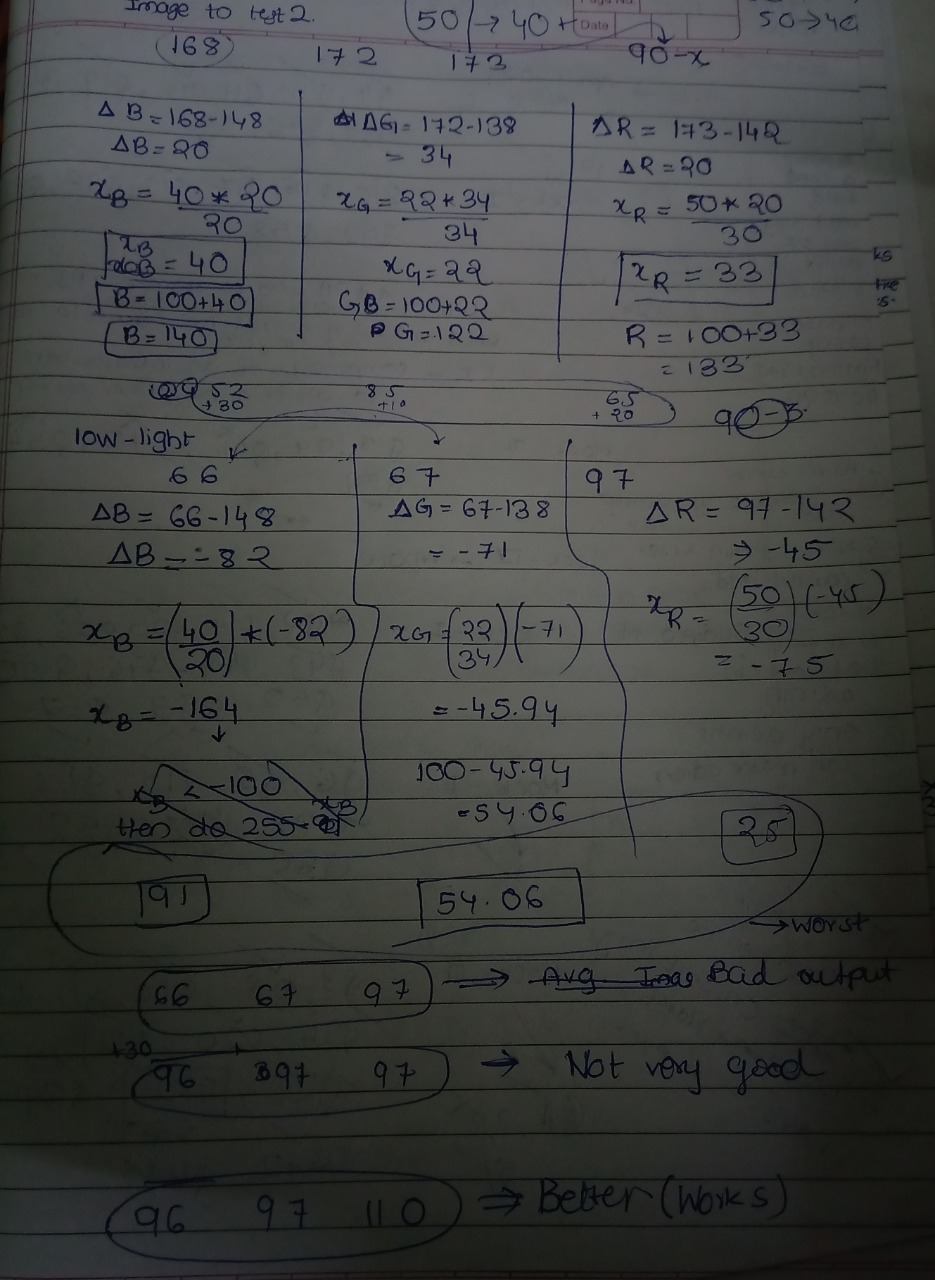 Image to test 2.
50 → 40 +
Data
50 → 40
168 172 173 90-x
Δ B = 168-148
ΔB = 20
xB = 40 * 20
20
xB = 40
B = 100+40
B = 140
ΔG = 172-138
= 34
xG = 22 * 34
34
xG = 22
G = 100+22
G = 122
ΔR = 173-142
ΔR = 20
xR = 50 * 20
30
xR = 33
R = 100+33
= 133
52 85 65
+30 +10 + 20
90-
low-light
66 67 97
ΔB = 66-148
ΔB = -82
xB = (40/20) * (-82)
xB = -164
xB < -100
then do 255-
ΔG = 67-138
= -71
xG = (22/34) (-71)
= -45.94
100-45.94
= 54.06
ΔR = 97-142
⇒ -45
xR = (50/30) (-45)
= -75
25
91 54.06
→ worst
66 67 97 → Avg Bad output
+30
96 97 97 → Not very good
96 97 110 ⇒ Better (Works)